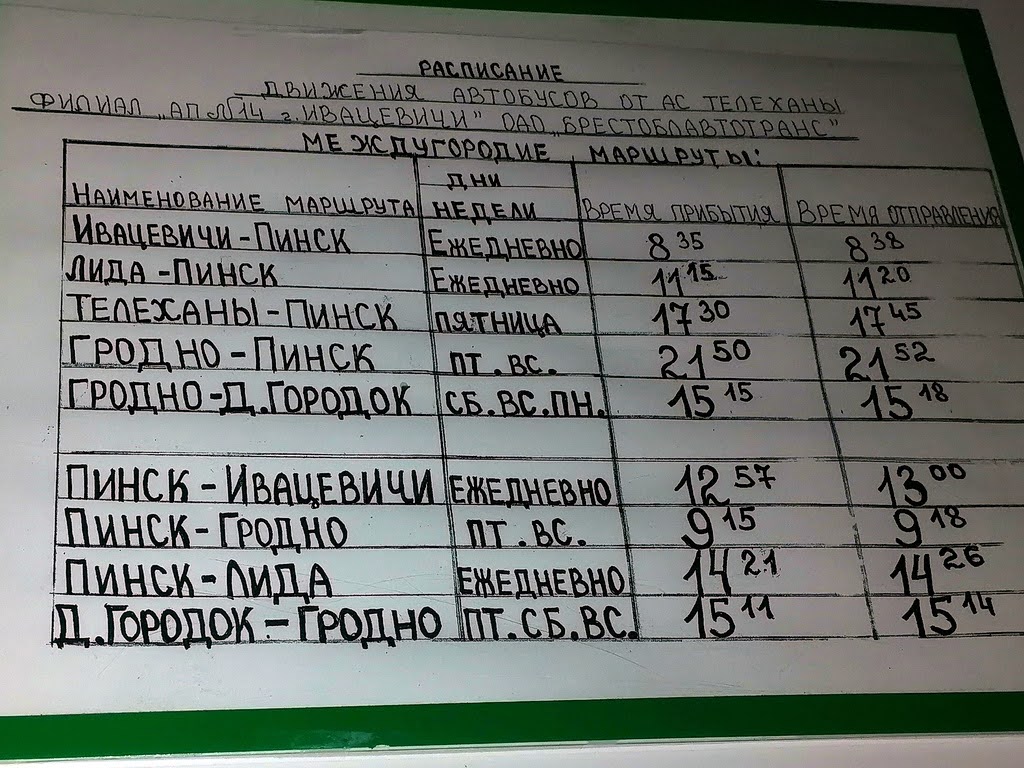 РАСПИСАНИЕ
ДВИЖЕНИЯ АВТОБУСОВ ОТ АС ТЕЛЕХАНЫ
ФИЛИАЛ „АП №14 г. ИВАЦЕВИЧИ" ОАО „БРЕСТОБЛАВТОТРАНС"
МЕЖДУГОРОДИЕ МАРШРУТЫ:
НАИМЕНОВАНИЕ МАРШРУТА ДНИ НЕДЕЛИ ВРЕМЯ ПРИБЫТИЯ ВРЕМЯ ОТПРАВЛЕНИЯ
ИВАЦЕВИЧИ-ПИНСК ЕЖЕДНЕВНО 8 35 8 38
ЛИДА-ПИНСК ЕЖЕДНЕВНО 11 15 11 20
ТЕЛЕХАНЫ-ПИНСК ПЯТНИЦА 17 30 17 45
ГРОДНО-ПИНСК ПТ.ВС. 21 50 21 52
ГРОДНО-Д.ГОРОДОК СБ.ВС.ПН. 15 15 15 18
ПИНСК-ИВАЦЕВИЧИ ЕЖЕДНЕВНО 12 57 13 00
ПИНСК-ГРОДНО ПТ.ВС. 9 15 9 18
ПИНСК-ЛИДА ЕЖЕДНЕВНО 14 21 14 26
Д.ГОРОДОК-ГРОДНО ПТ.СБ.ВС. 15 11 15 14